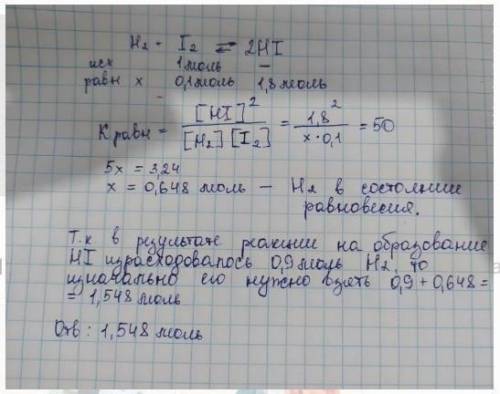 H₂ - I₂ ⇌ 2HI
исх 1 моль –
равн x 0,1 моль 1,8 моль
K равн = [HI]² / [H₂][I₂] = 1,8² / x·0,1 = 50
5x = 3,24
x = 0,648 моль – H₂ в состоянии
равновесия.
Т.к в результате реакции на образование
HI израсходовалось 0,9 моль H₂, то
изначально его нужно взять 0,9 + 0,648 =
= 1,548 моль
Отв: 1,548 моль